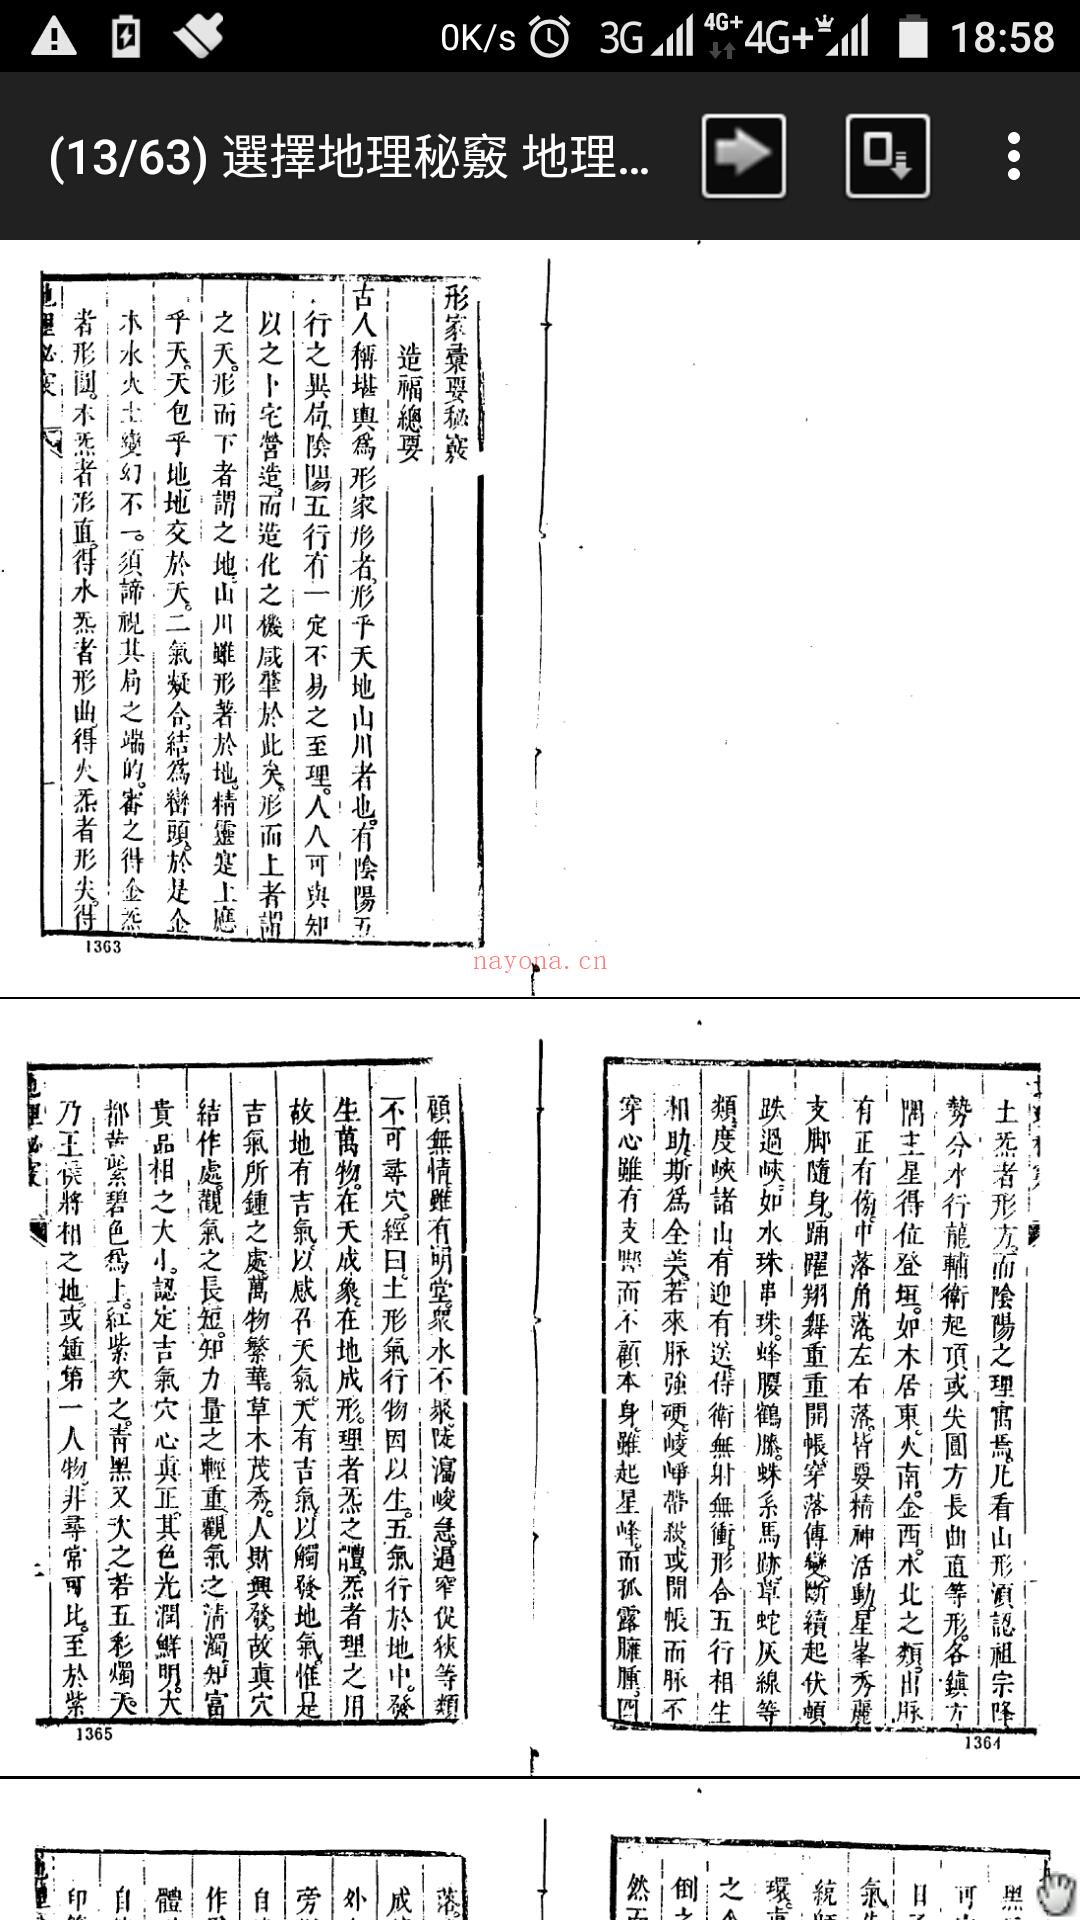 0K/s 3G 4G+ 4G+ 18:58
(13/63) 選擇地理秘竅 地理...
形家彙要秘竅
造福總要
古人稱堪輿為形家形者形乎天地山川者也有陰陽五
行之異局陰陽五行有一定不易之至理人人可與知
以之卜宅營造而造化之機咸肇於此矣形而上者謂
之天形而下者謂之地山川雖形著於地精靈寔上應
乎天天包乎地地交於天二氣凝合結為巒頭於是金
木水火土變幻不一須諦視其局之端的審之得金炁
者形圓木炁者形直得水炁者形曲得火炁者形尖得
地理秘竅
一
1363
nayona.cn
土炁者形方而陰陽之理寓焉凡看山形須認祖宗降
勢分水行龍輔衛起頂或尖圓方長曲直等形各鎮方
隅主星得位登垣如木居東火南金西水北之類出脉
有正有傍中落角落左右落皆要精神活動星峯秀麗
支脚隨身踊躍翔舞重重開帳穿落傳變斷續起伏頓
跌過峽如水珠串珠蜂腰鶴膝蛛系馬跡草蛇灰線等
類度峽諸山有迎有送侍衛無射無衝形合五行相生
相助斯為全美若來脉強硬崚崢帶煞或開帳而脉不
穿心雖有支腳而不顧本身雖起星峰而孤露臃腫四
1364
顧無情雖有明堂眾水不聚陡瀉峻急逼窄促狹等類
不可尋穴經曰土形氣行物因以生五氣行於地中發
生萬物在天成象在地成形理者炁之體炁者理之用
故地有吉氣以感召天氣天有吉氣以觸發地氣惟是
吉氣所鍾之處萬物繁華草木茂秀人財興發故真穴
結作處觀氣之長短知力量之輕重觀氣之清濁知富
貴品相之大小認定吉氣穴心真正其色光潤鮮明大
都黃紫碧色為上紅紫次之青黑又次之若五彩燭天
乃王侯將相之地或鍾第一人物非尋常可比至於紫
地理秘竅
二
1365
黑
可
日
氣
統
環
之
倒
然
落
成
外
旁
自
作
體
自
印